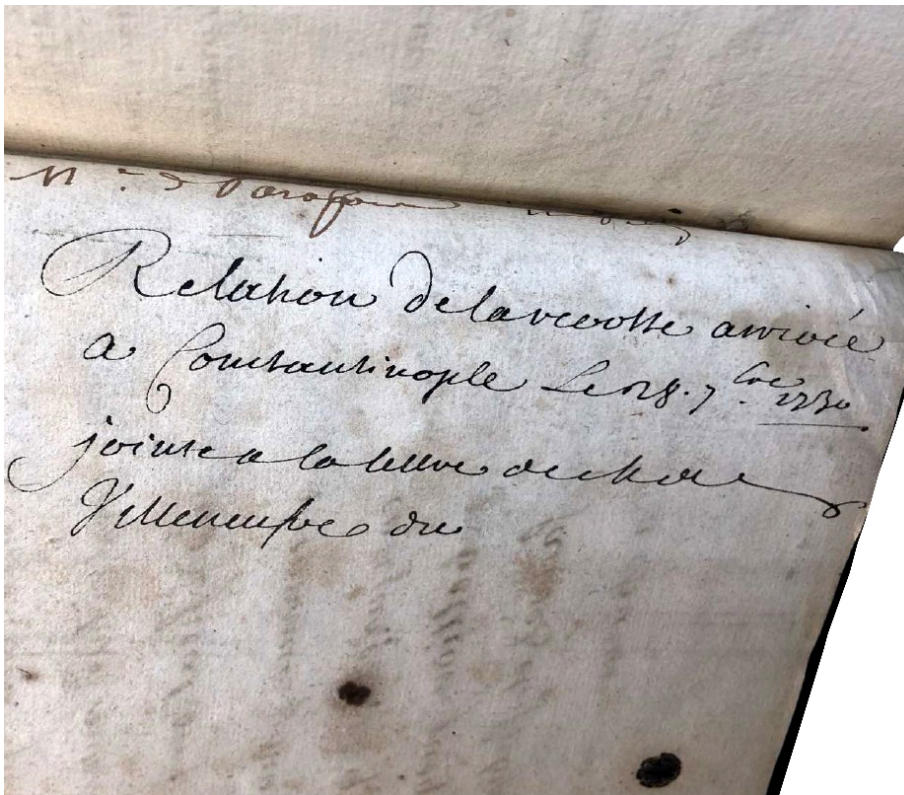 Mr. de
Relation de la revolte arrivée
a Constantinople Le 28. 7bre 1730
jointe a la lettre de M de
Villeneufve du